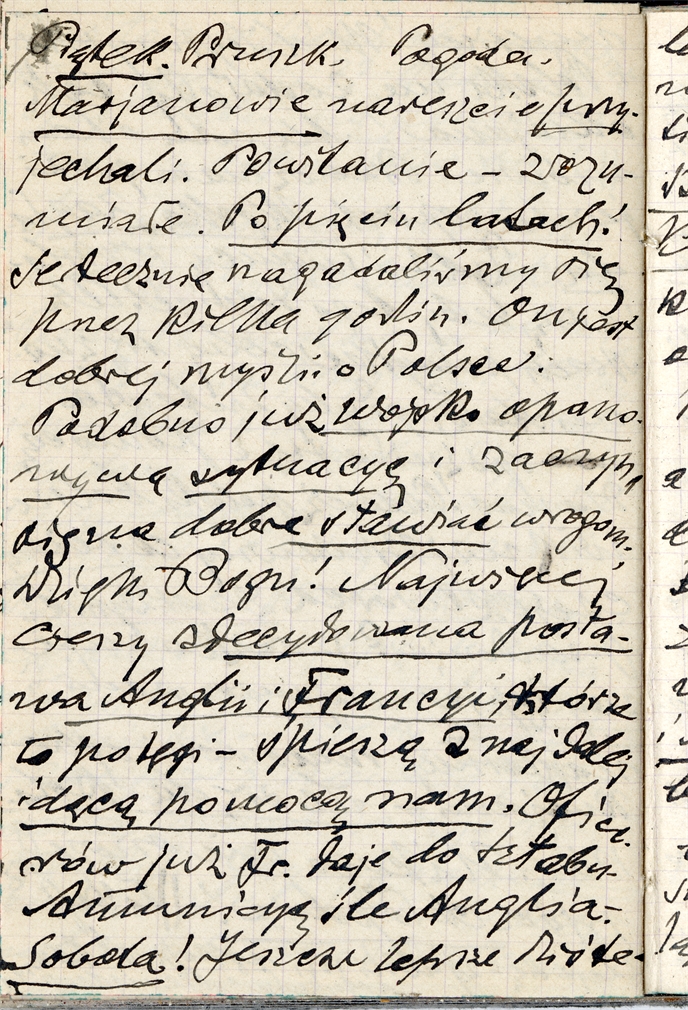 Piątek. Pruszk. Pogoda.
Marjanowie nareszcie przy-
jechali. Powitanie – zrozu-
miałe. Po pięciu latach!
Serdecznie nagadaliśmy się
przez kilka godzin. On jest
dobrej myśli o Polsce.
Podobno już wojsko opano-
wywa sytuacyę i zaczyn
dobre stawiać wrogom.
Dzięki Bogu! Najwięcej
cieszy zdecydowana posta-
wa Anglii i Francyi, które
to potęgi – śpieszą z najdalej
idącą pomocą nam. Ofice-
rów już Fr. daje do sztabu
Amunicyę śle Anglia.
Sobota! Jeszcze lepsze